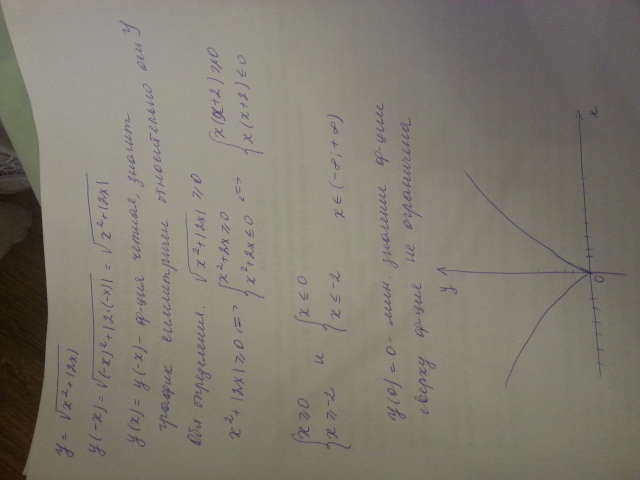 y = √x²+|2x|
y(-x) = √(-x)²+|2·(-x)| = √x²+|2x|
y(x) = y(-x) - ф-ция четная, значит
график симметричен относительно оси y
Обл определения. √x²+|2x| ≥0
x²+|2x|≥0 <=> { x²+2x≥0 x²+2x≤0 <=> { x(x+2)≥0 x(x+2)≤0
{ x≥0 x≥-2 и { x≤0 x≤-2 x∈(-∞;+∞)
y(0)=0 - мин. значение ф-ции
сверху ф-ция не ограничена
y
0
x